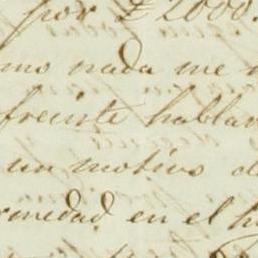 por £ 2000.
mo nada me
freiste hablar
un motivo d
riedad en el h